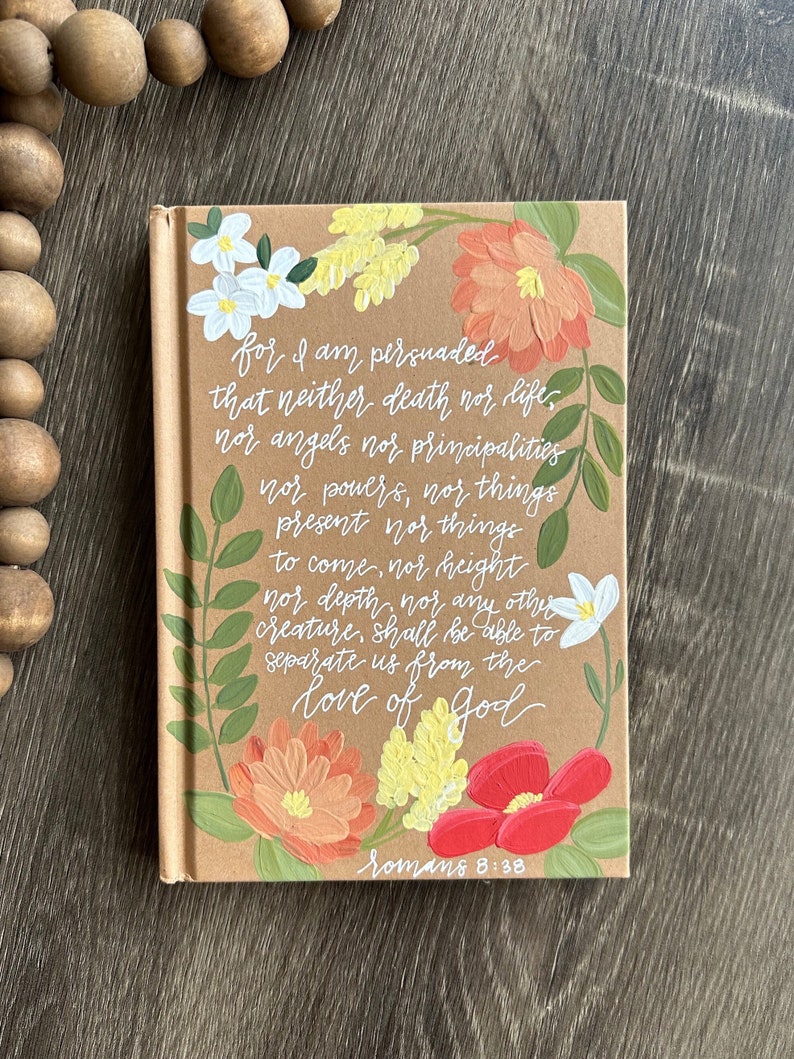 for I am persuaded
that neither death nor life,
nor angels nor principalities
nor powers, nor things
present nor things
to come, nor height
nor depth, nor any other
creature, shall be able to
separate us from the
love of God
romans 8:38